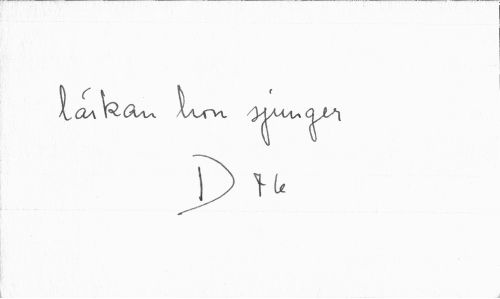 lärkan hon sjunger
D 76